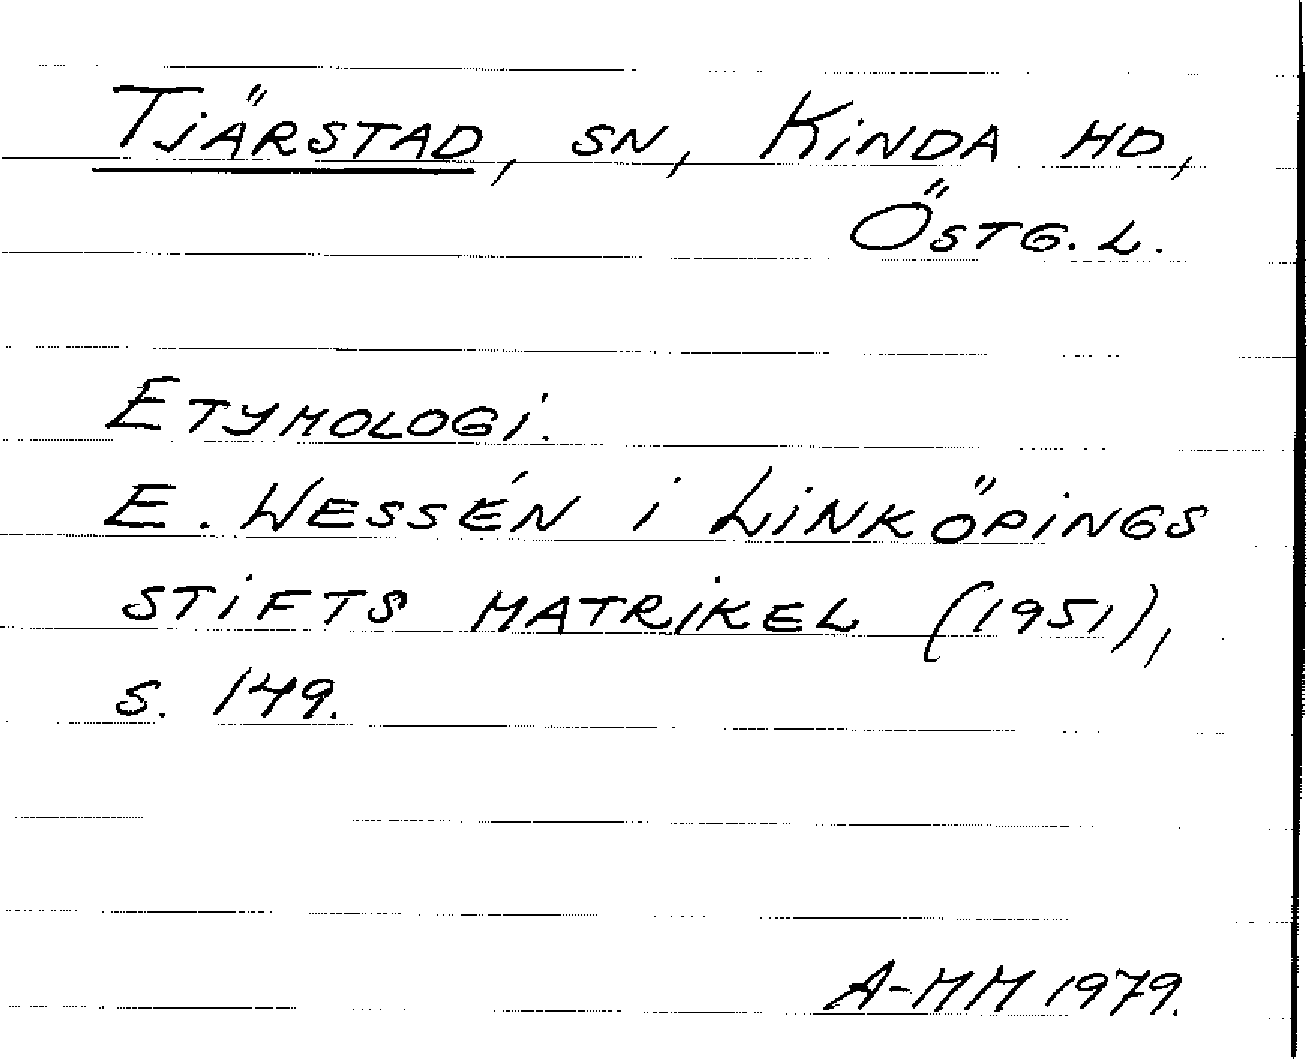 Tjärstad, sn, Kinda hd,
Östg. l.
Etymologi.
E. Wessén i Linköpings
stifts matrikel (1951),
s. 149.
A-MM 1979.